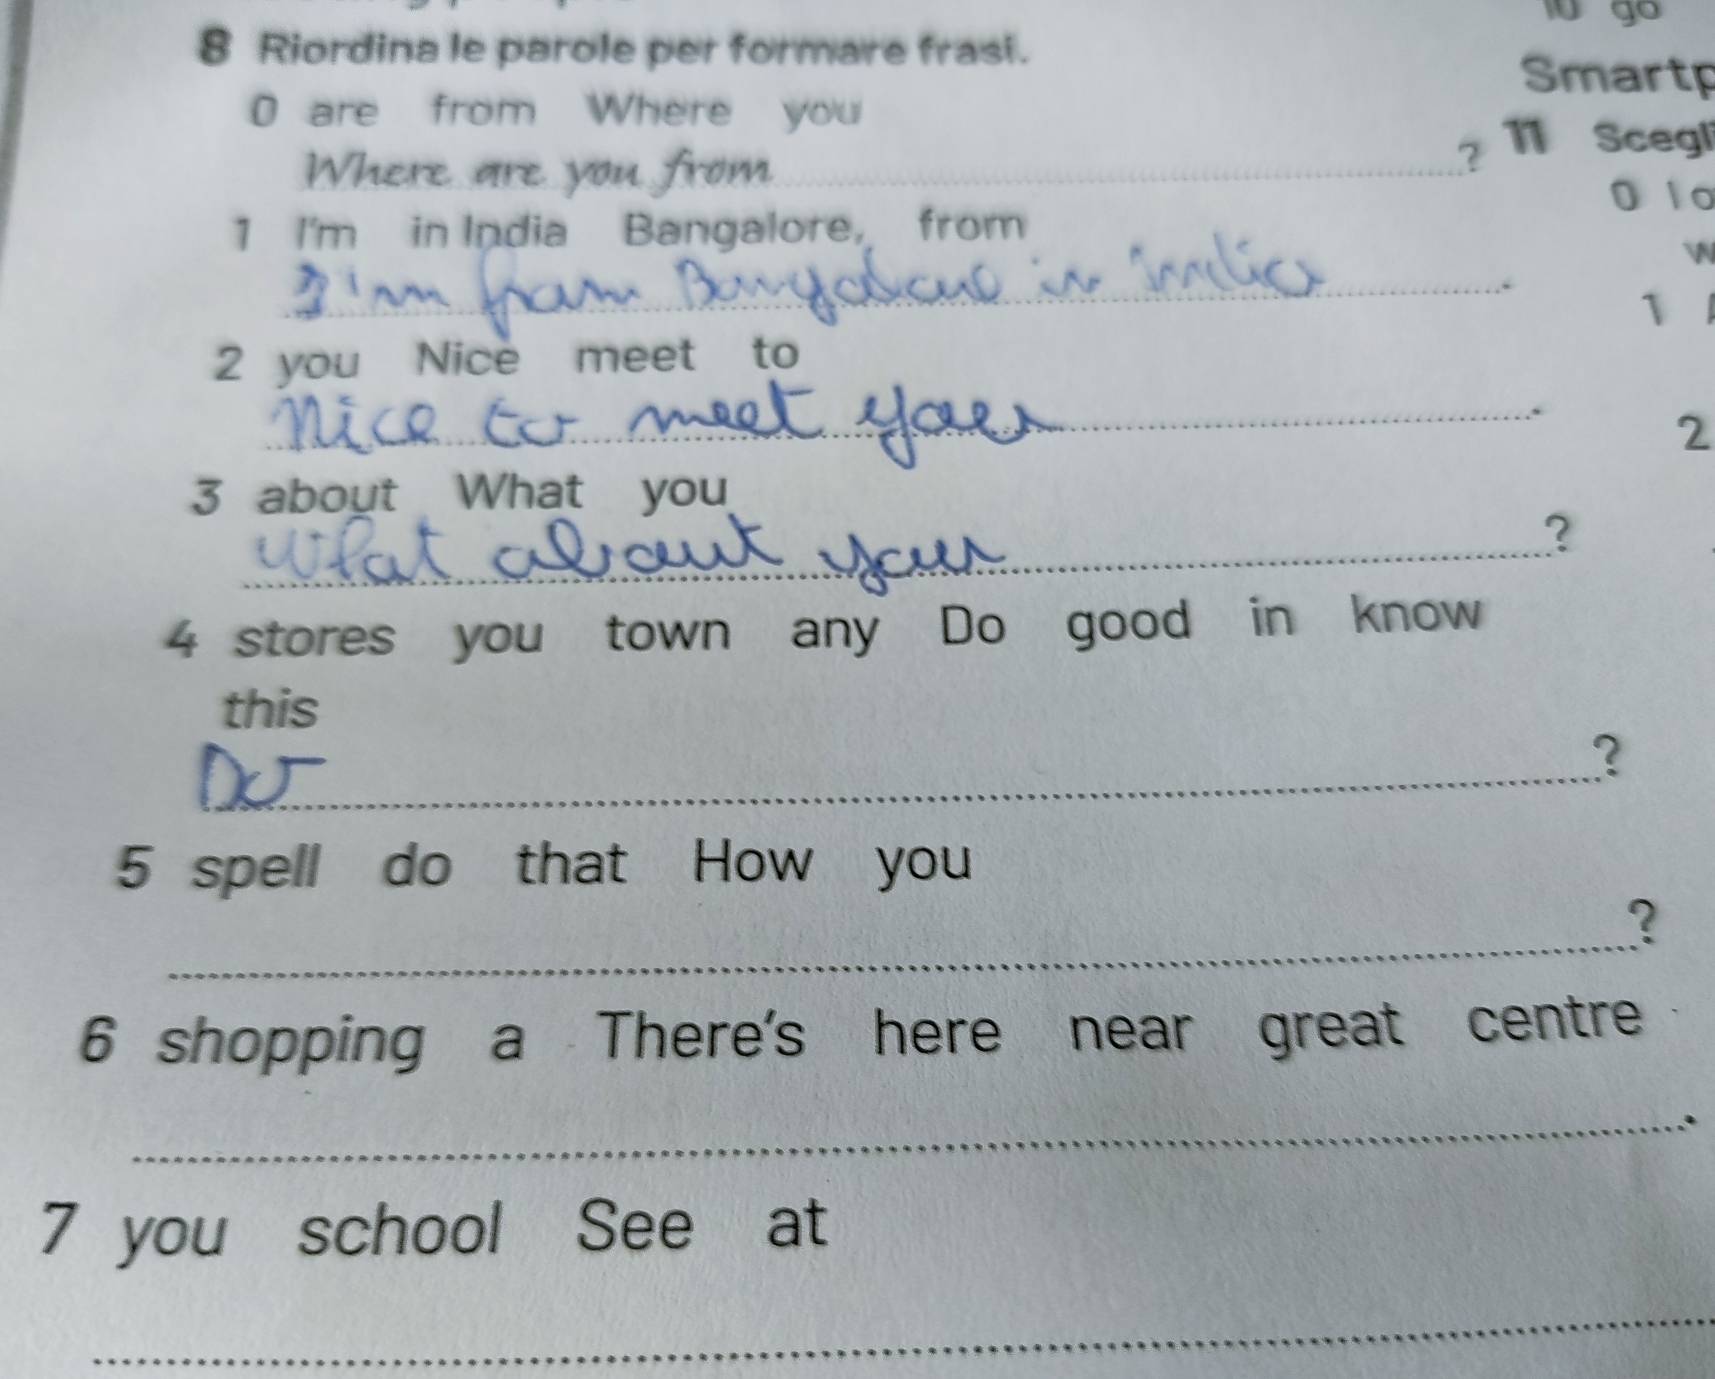 10 go
8 Riordina le parole per formare frasi.
Smartp
0 are from Where you
11 Scegli
Where are you from ?
0 I o
1 I'm in India Bangalore, from
w
I'm from Bangalore in India .
1
2 you Nice meet to
Nice to meet you .
2
3 about What you
What about you ?
4 stores you town any Do good in know
this
Do ?
5 spell do that How you
?
6 shopping a There's here near great centre
.
7 you school See at